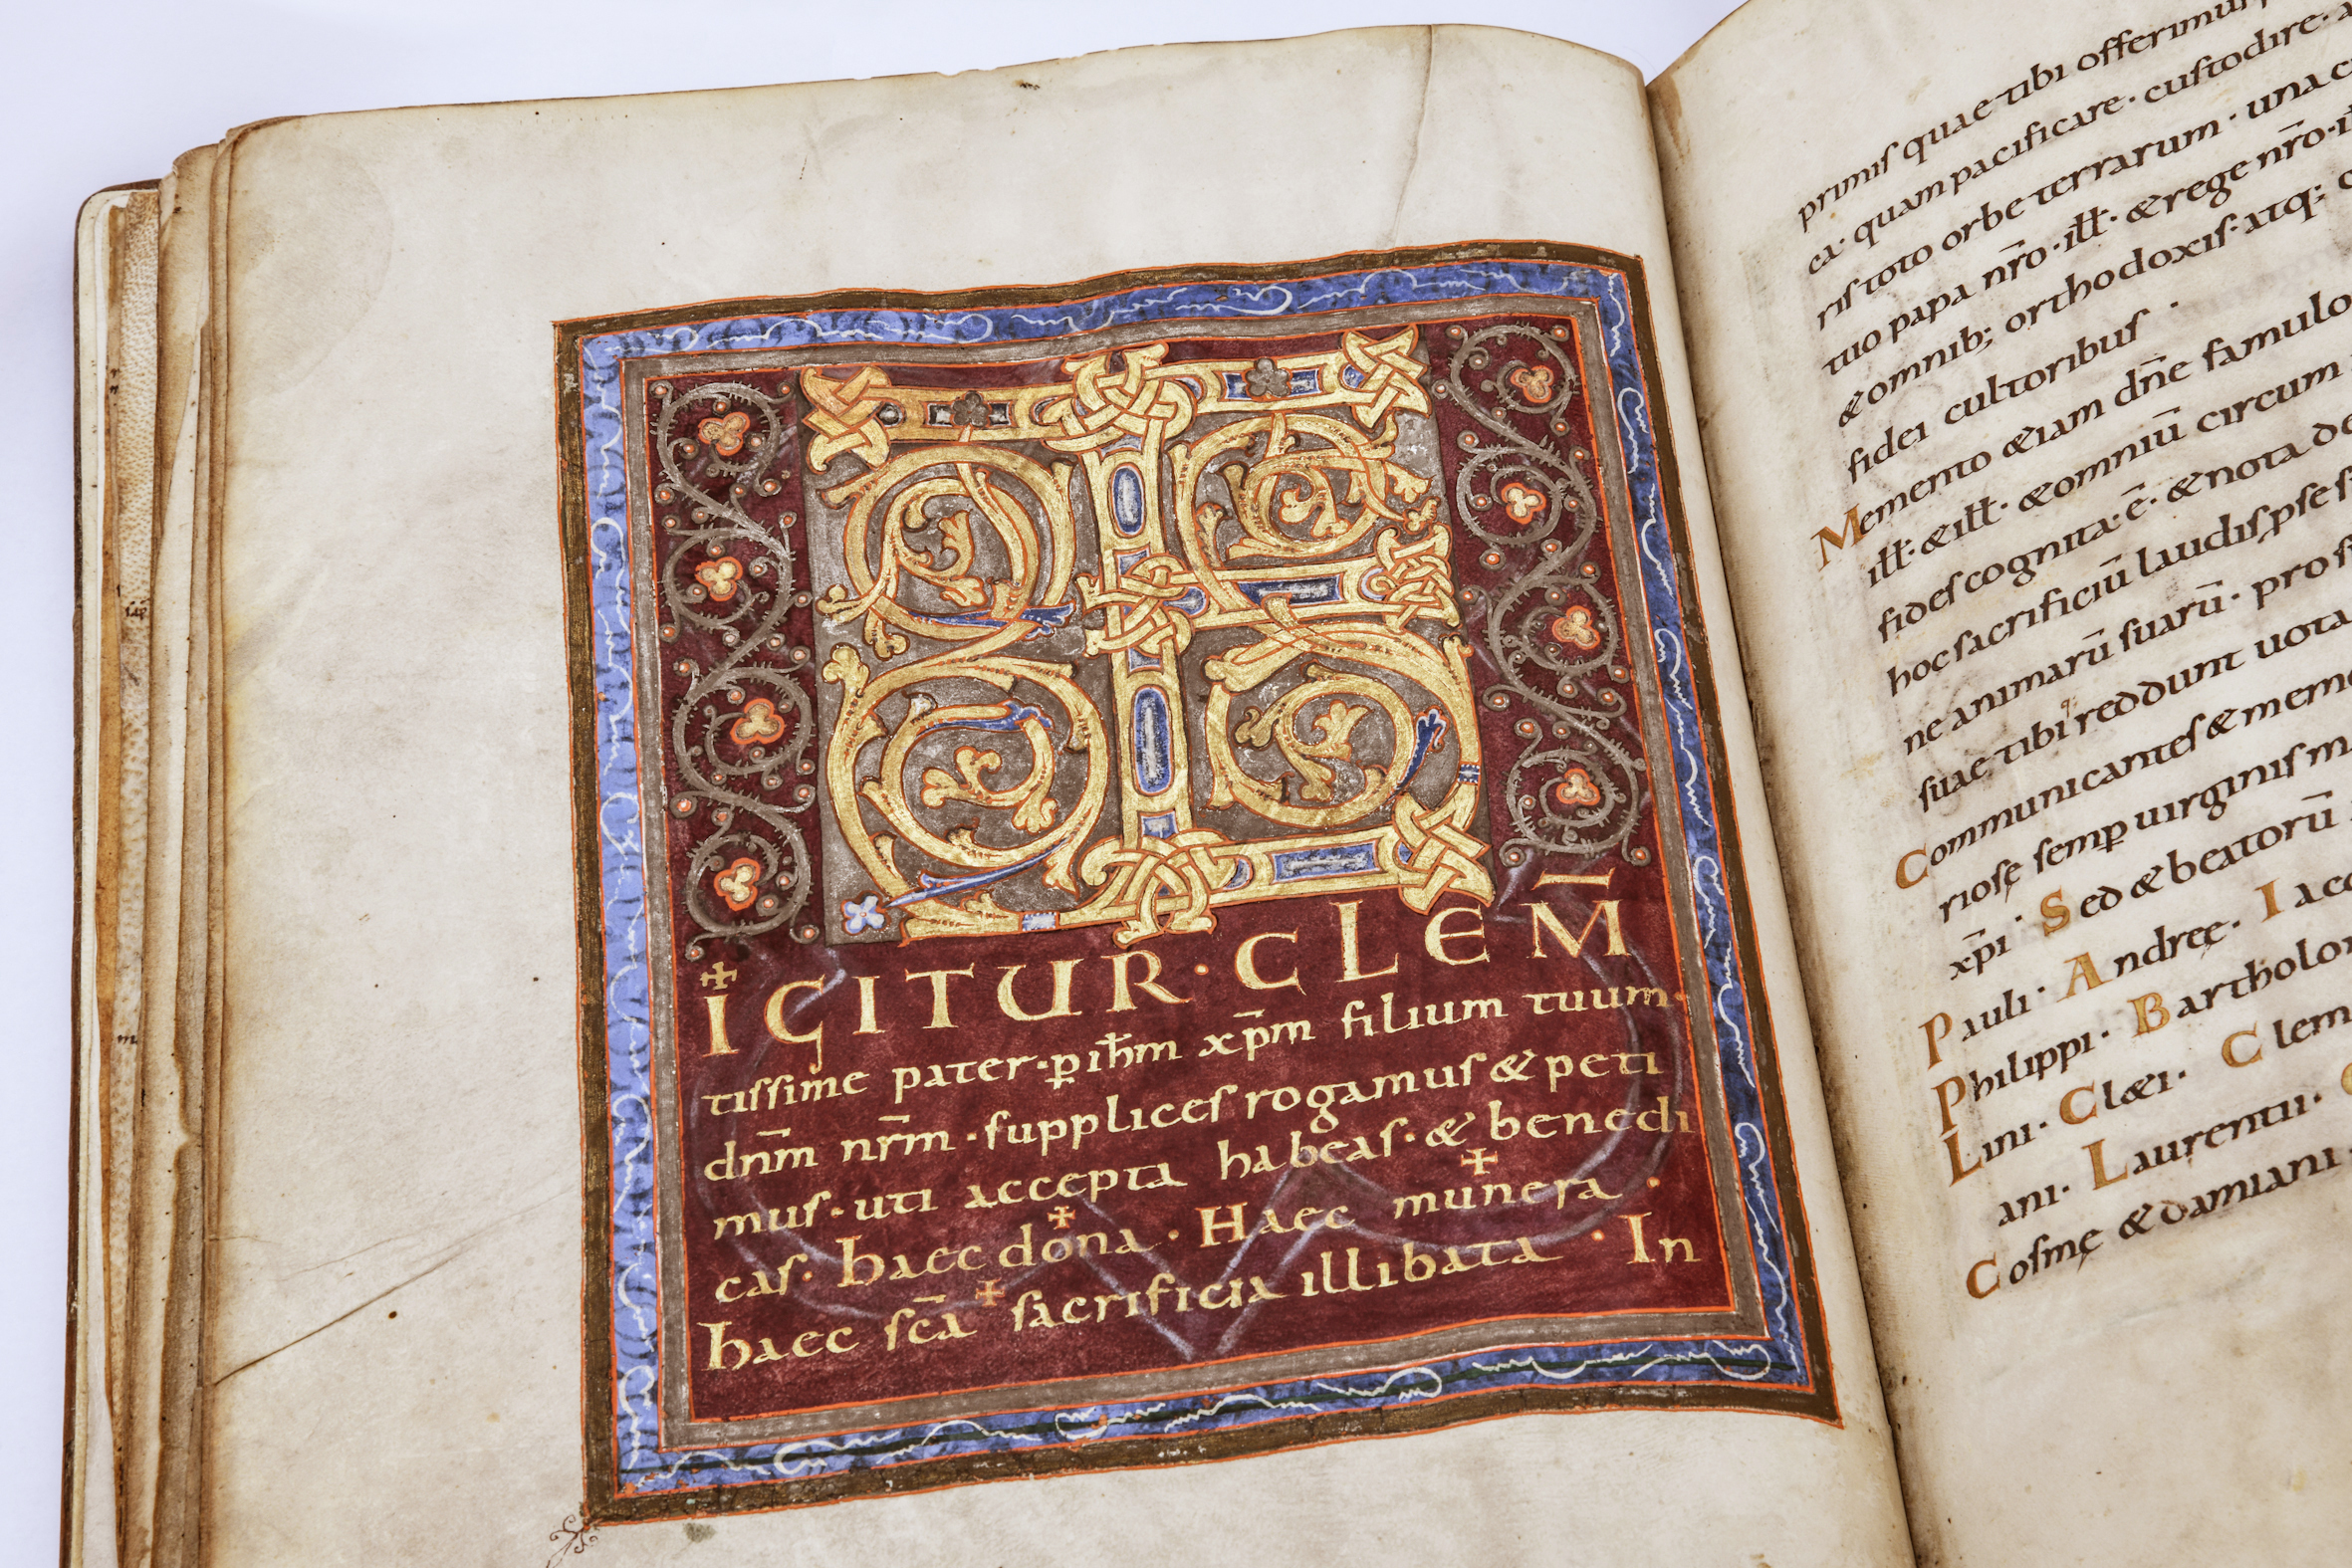 TE
IGITUR · CLEM̄
tiſſime pater · ꝑ ih̄m xp̄m filium tuum ·
dn̄m nr̄m · ſuppliceſ rogamuſ & peti
muſ · uti accepta habeaſ · & benedi
caſ · haec ✝ dona · Haec ✝ munera ·
haec ſc̄a ✝ ſacrificia illibata · In
primiſ quae tibi offerimuſ
ca · quam pacificare · cuſtodire ·
riſ toto orbe terrarum · una
tuo papa nr̄o · ill̄ · & rege nr̄o ·
& omnib; orthodoxiſ · atq;
fidei cultoribuſ ·
Memento &iam dn̄e famulo
ill̄ · & ill̄ · & omniū circum
fideſ cognita · ē · & nota
hoc ſacrificiū laudiſ · pſe
ne animarū ſuarū · pro
ſuae tibi reddunt uota
Communicanteſ & mem
rioſę ſemꝑ uirginiſ
xp̄i · Sed & beatorū
Pauli · Andreę · Iac
Philippi · Bartholo
Lini · Cl&i · Clem
ani · Laurentii ·
Coſmę & damiani ·